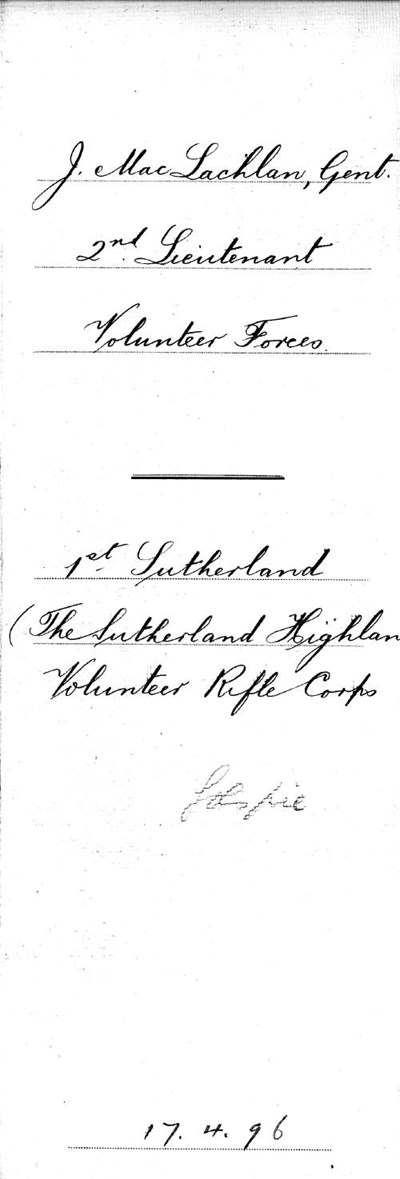 J. MacLachlan, Gent.
2nd. Lieutenant
Volunteer Forces.
1st Sutherland
(The Sutherland Highlan
Volunteer Rifle Corps
Golspie
17. 4. 96